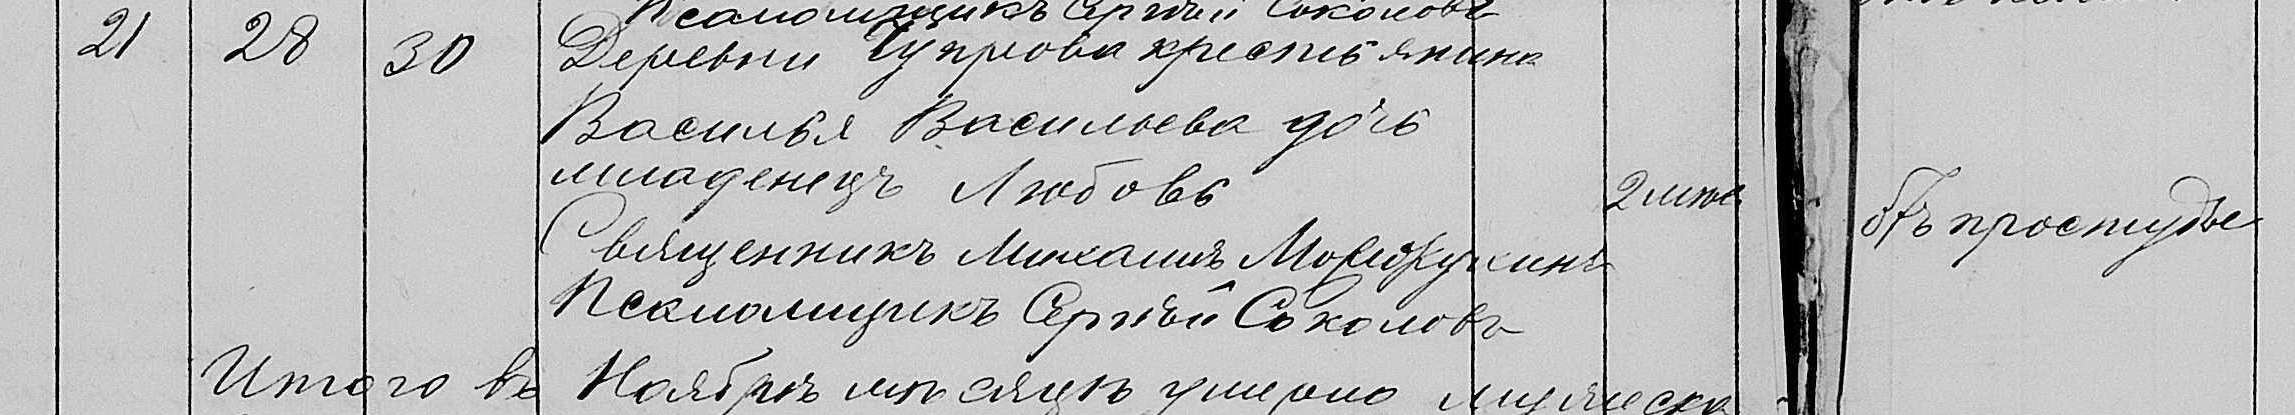 Псаломщикъ Сергѣй Соколовъ
21 28 30 Деревни Чупрова крестьянина
Василья Васильева дочь
младенецъ Любовь
2 мѣс.
отъ простуды
Священникъ Михаилъ
Псаломщикъ Сергѣй Соколовъ
Итого въ Ноябрѣ мѣсяцѣ умерло мужеска